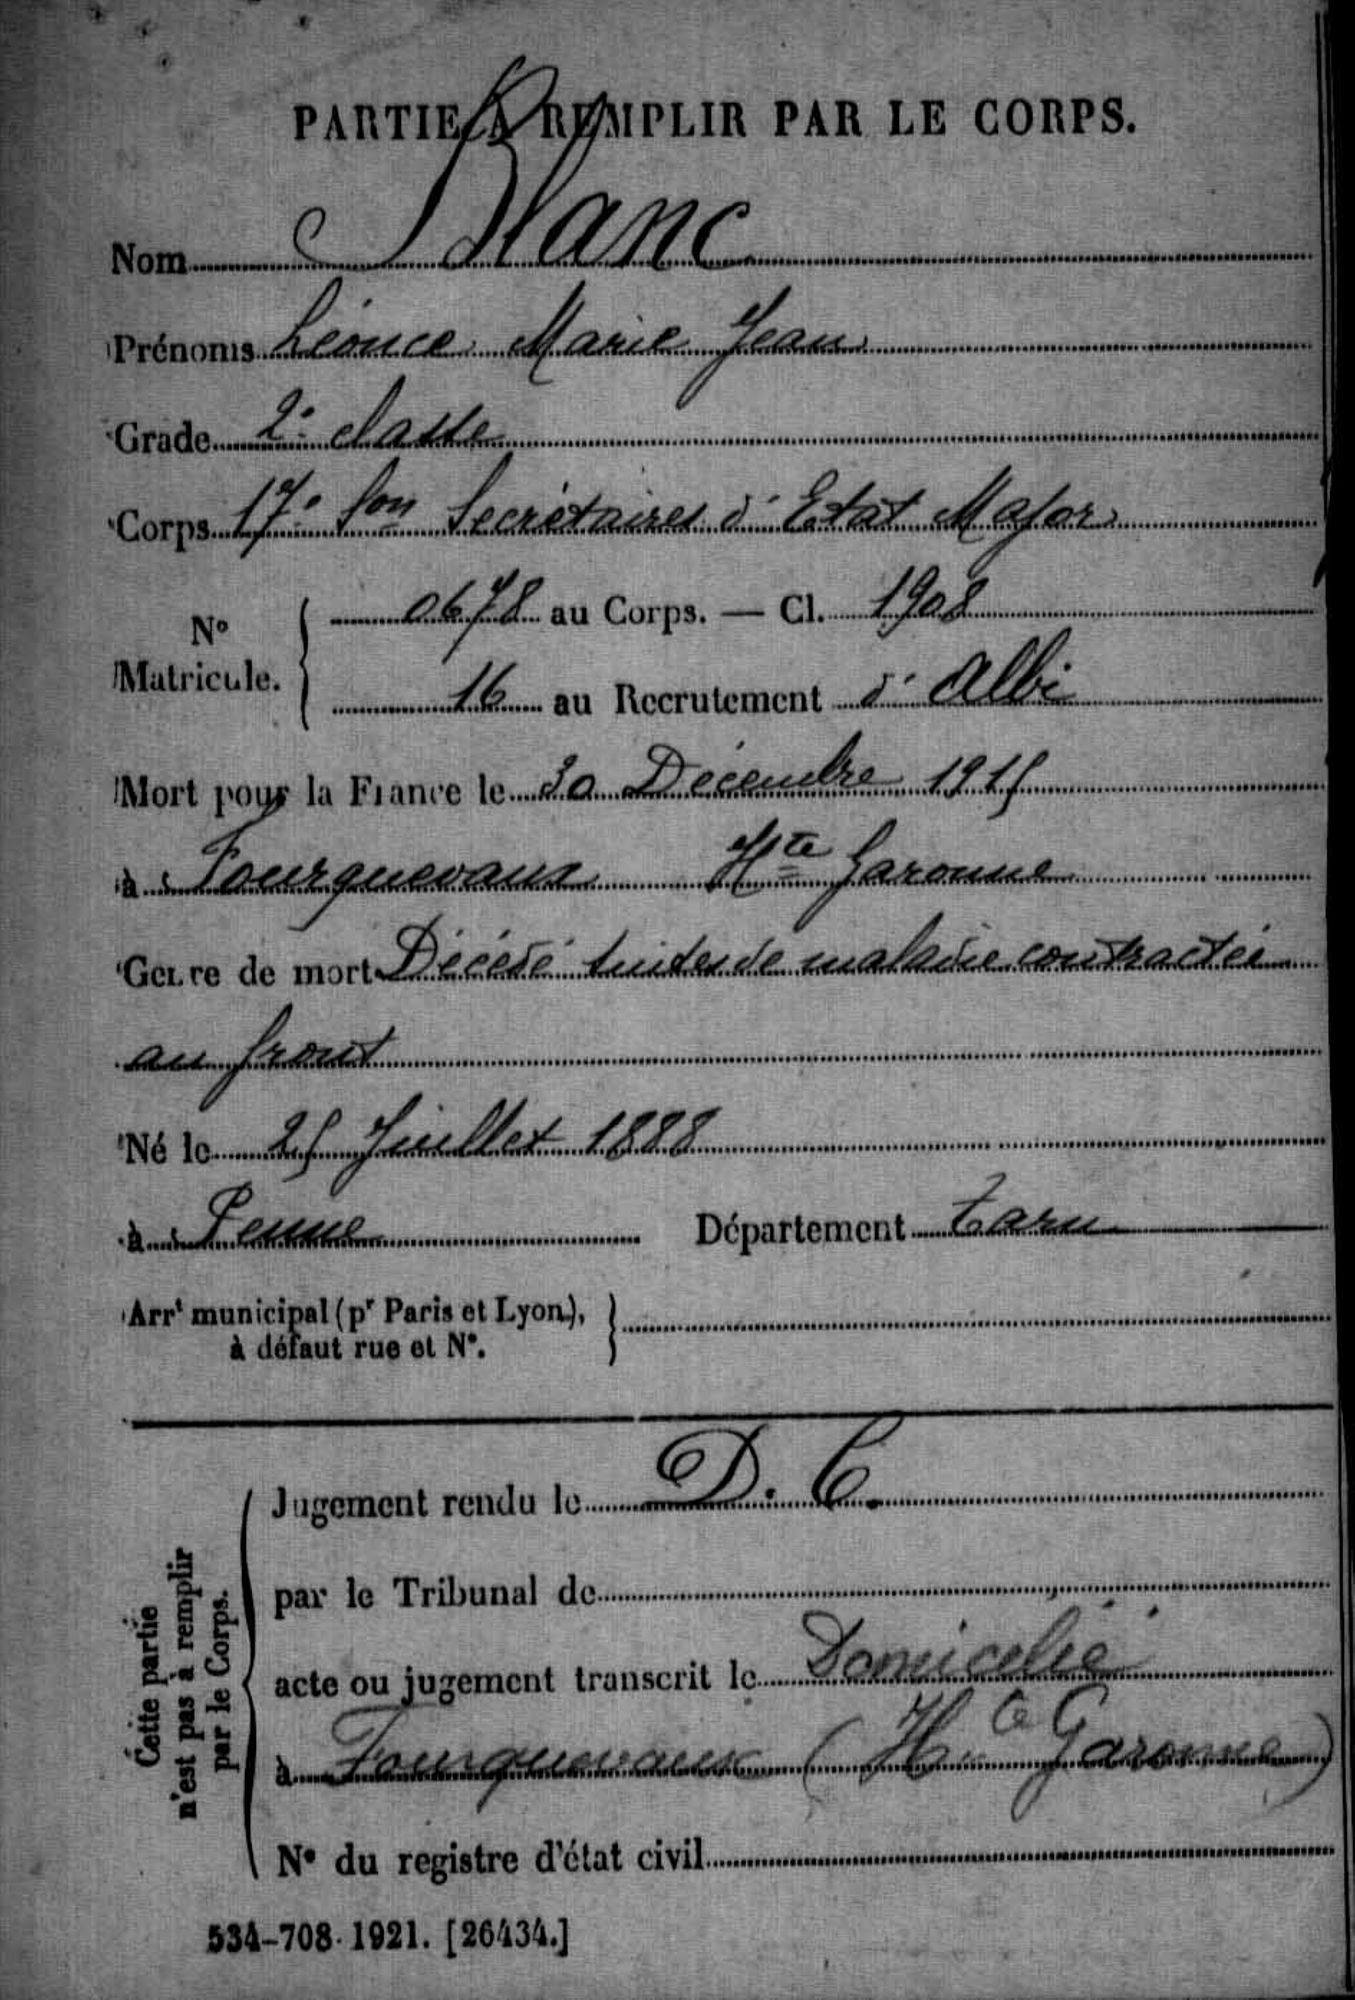 PARTIE À REMPLIR PAR LE CORPS.
Nom Blanc
Prénoms Léonce Marie Jean
Grade 2e classe
Corps 17e Son Secrétaires d'Etat Major
No Matricule. { 0678 au Corps. — Cl. 1908
16 au Recrutement d'Albi
Mort pour la France le 30 Décembre 1915
à Fourquevaux Hte Garonne
Genre de mort Décédé suites de maladie contractée
au front
Né le 25 Juillet 1888
à Penne Département Tarn
Arrt municipal (pr Paris et Lyon),
à défaut rue et N°.
Cette partie
n'est pas à remplir
par le Corps.
Jugement rendu le D. C.
par le Tribunal de
acte ou jugement transcrit le Domicilié
à Fourquevaux (Hte Garonne)
N° du registre d'état civil
534-708-1921. [26434.]